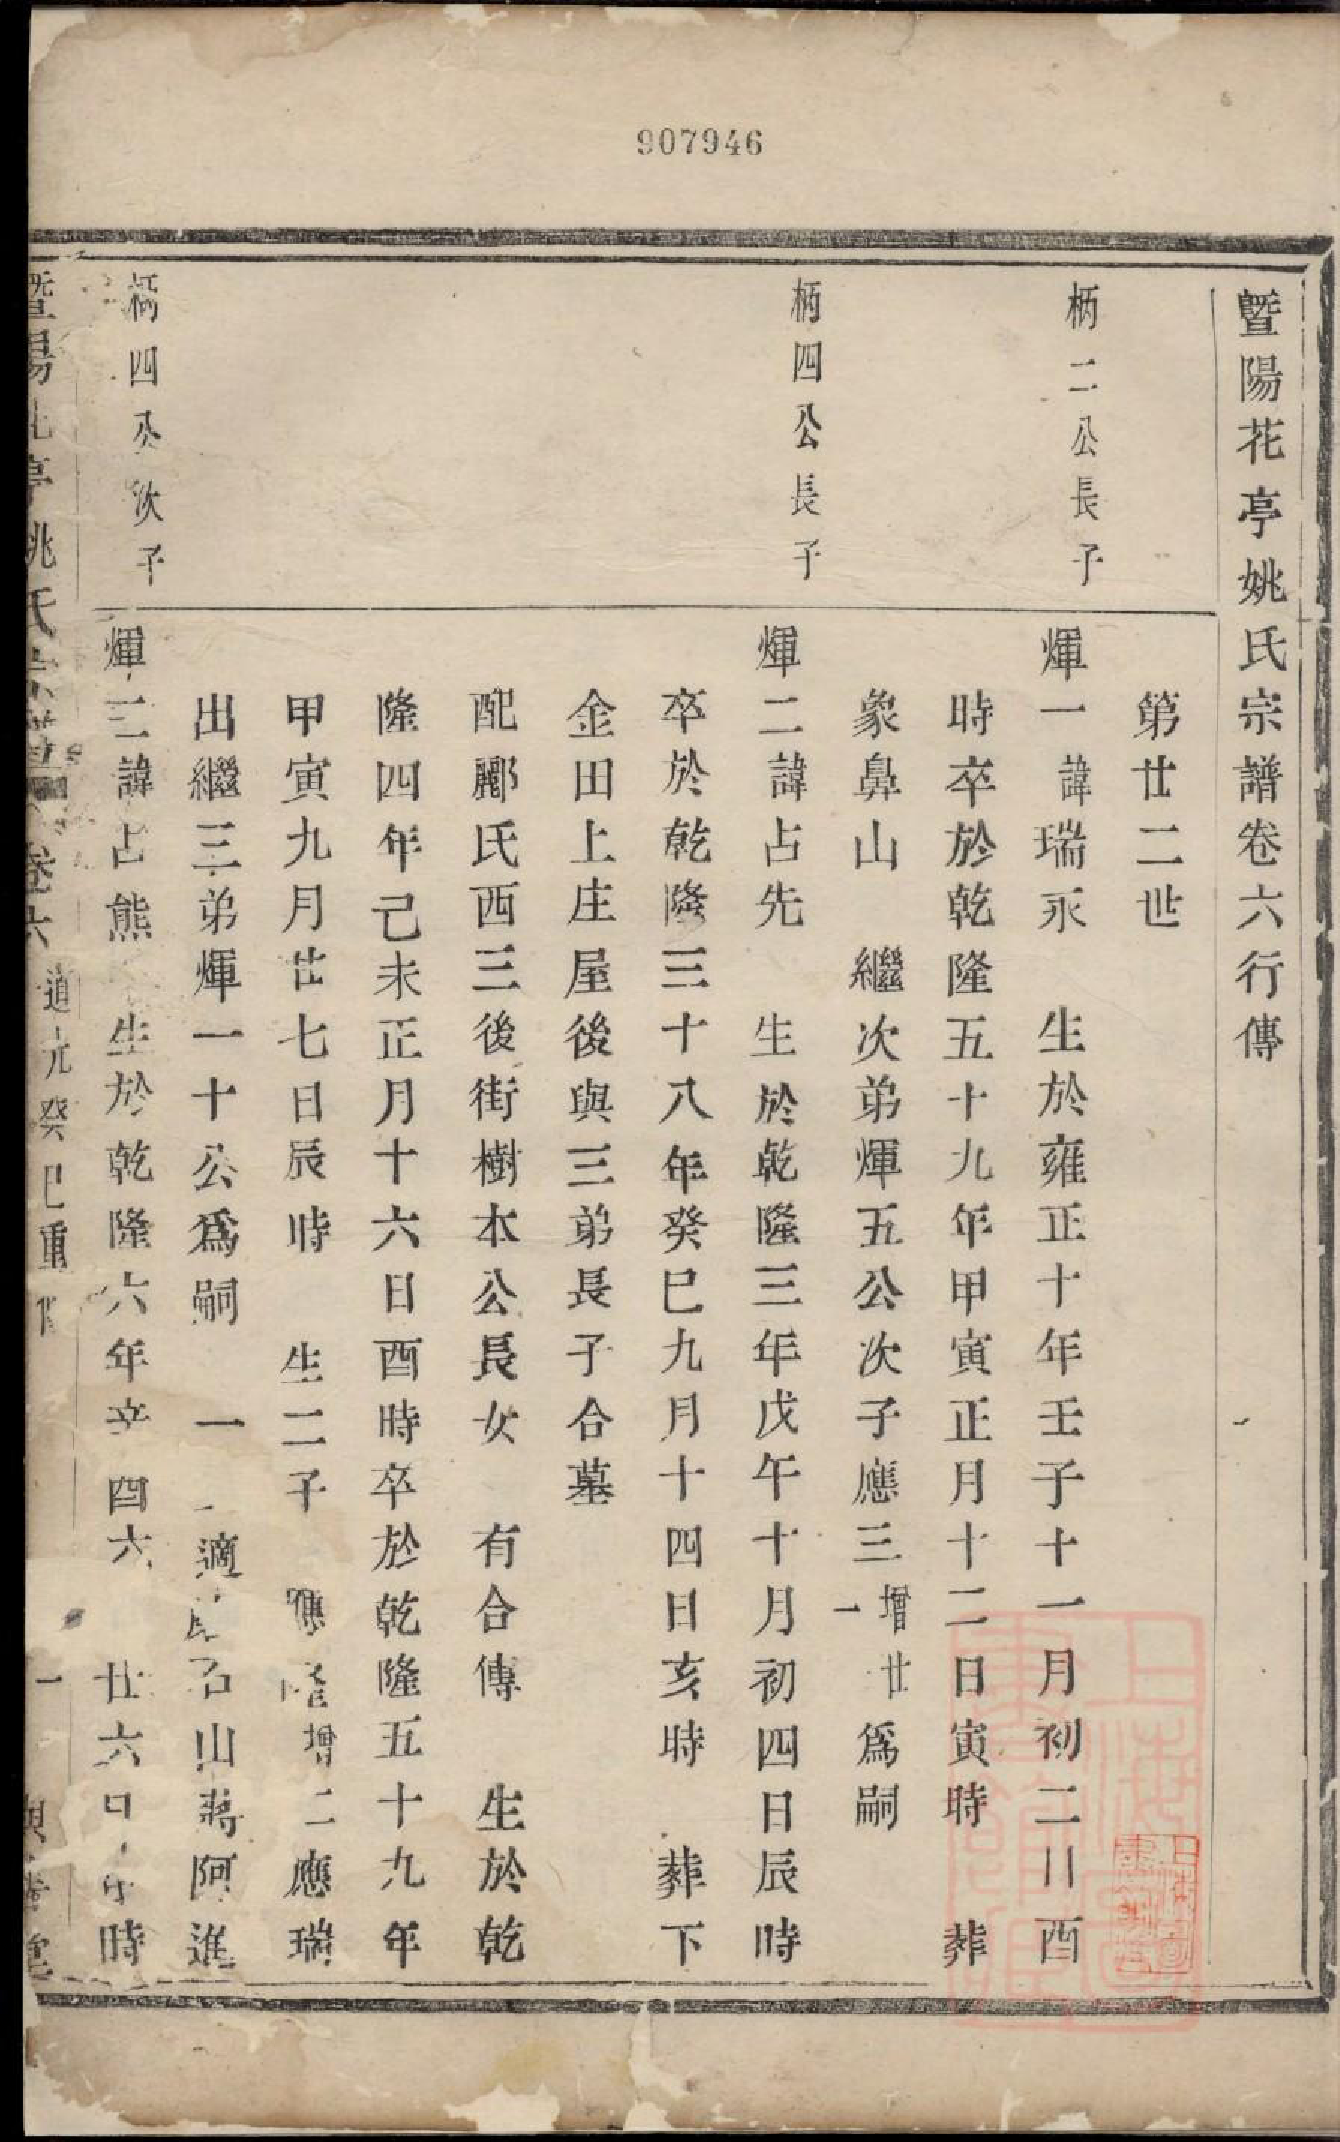 907946
暨陽花亭姚氏宗譜卷六行傳
第廿二世
柄二公長子
煇一諱瑞永　生於雍正十年壬子十一月初二日酉
時卒於乾隆五十九年甲寅正月十二日寅時　葬
象鼻山　繼次弟煇五公次子應三增廿一爲嗣
柄四公長子
煇二諱占先　生於乾隆三年戊午十月初四日辰時
卒於乾隆三十八年癸巳九月十四日亥時　葬下
金田上庄屋後與三弟長子合墓
配酈氏西三後街樹本公長女　有合傳　生於乾
隆四年己未正月十六日酉時卒於乾隆五十九年
甲寅九月廿七日辰時　生二子　增二應瑞
出繼三弟煇一十公爲嗣　一　適　石山蔣阿進
柄四公次子
煇三諱占熊　生於乾隆六年辛酉六　廿六日　時
暨陽花亭姚氏宗譜　卷六　道光癸巳重修　一